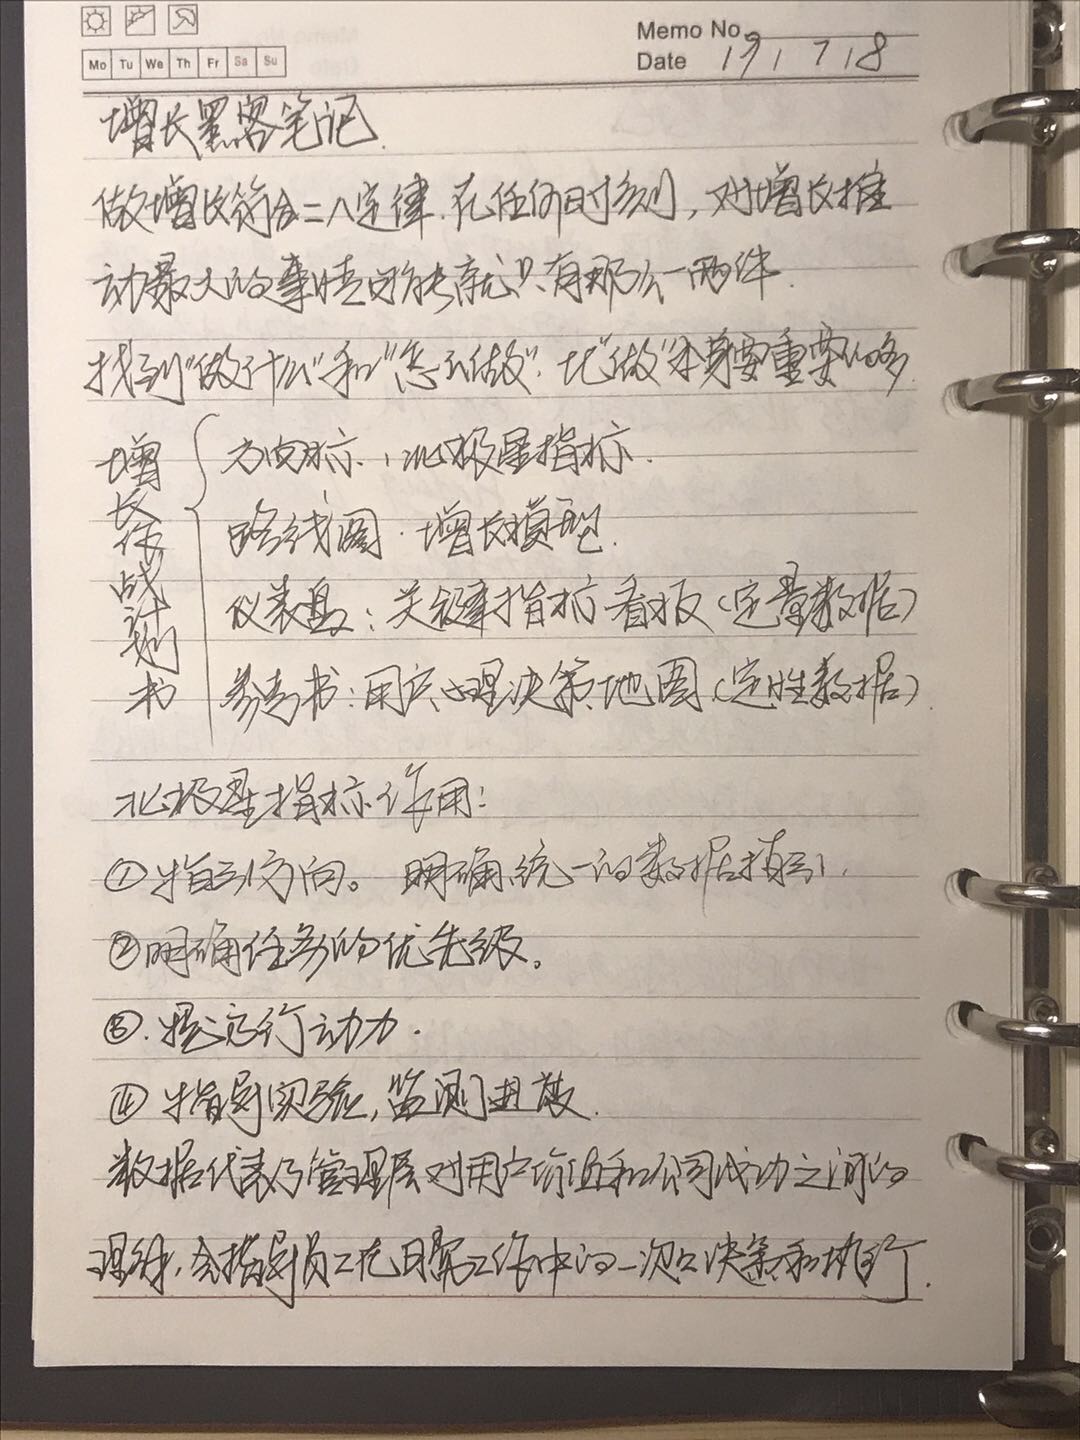 Mo Tu We Th Fr Sa Su
Memo No.
Date 19 / 7 / 8
增长黑客笔记
做增长符合二八定律.在任何时刻,对增长推
动最大的事情可能就只有那么一两件.
找到"做什么"和"怎么做".比"做"本身要重要的多
增长作战计划书
方向标:北极星指标.
路线图.增长模型.
仪表盘:关键指标看板(定量数据)
参考书:用户心理决策地图(定性数据).
北极星指标作用:
①指引方向。明确,统一的数据指引.
②明确任务的优先级。
③.提高行动力.
④指导实验,监测进度.
数据代表了管理层对用户价值和公司成功之间的
理解,会指导员工在日常工作中的一次次决策和执行.